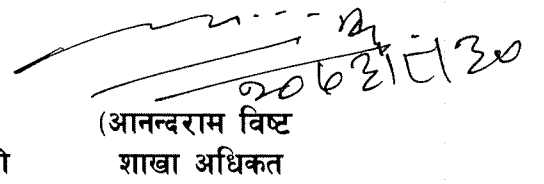 २०७३।८।३०
(आनन्दराम विष्ट
शाखा अधिकत